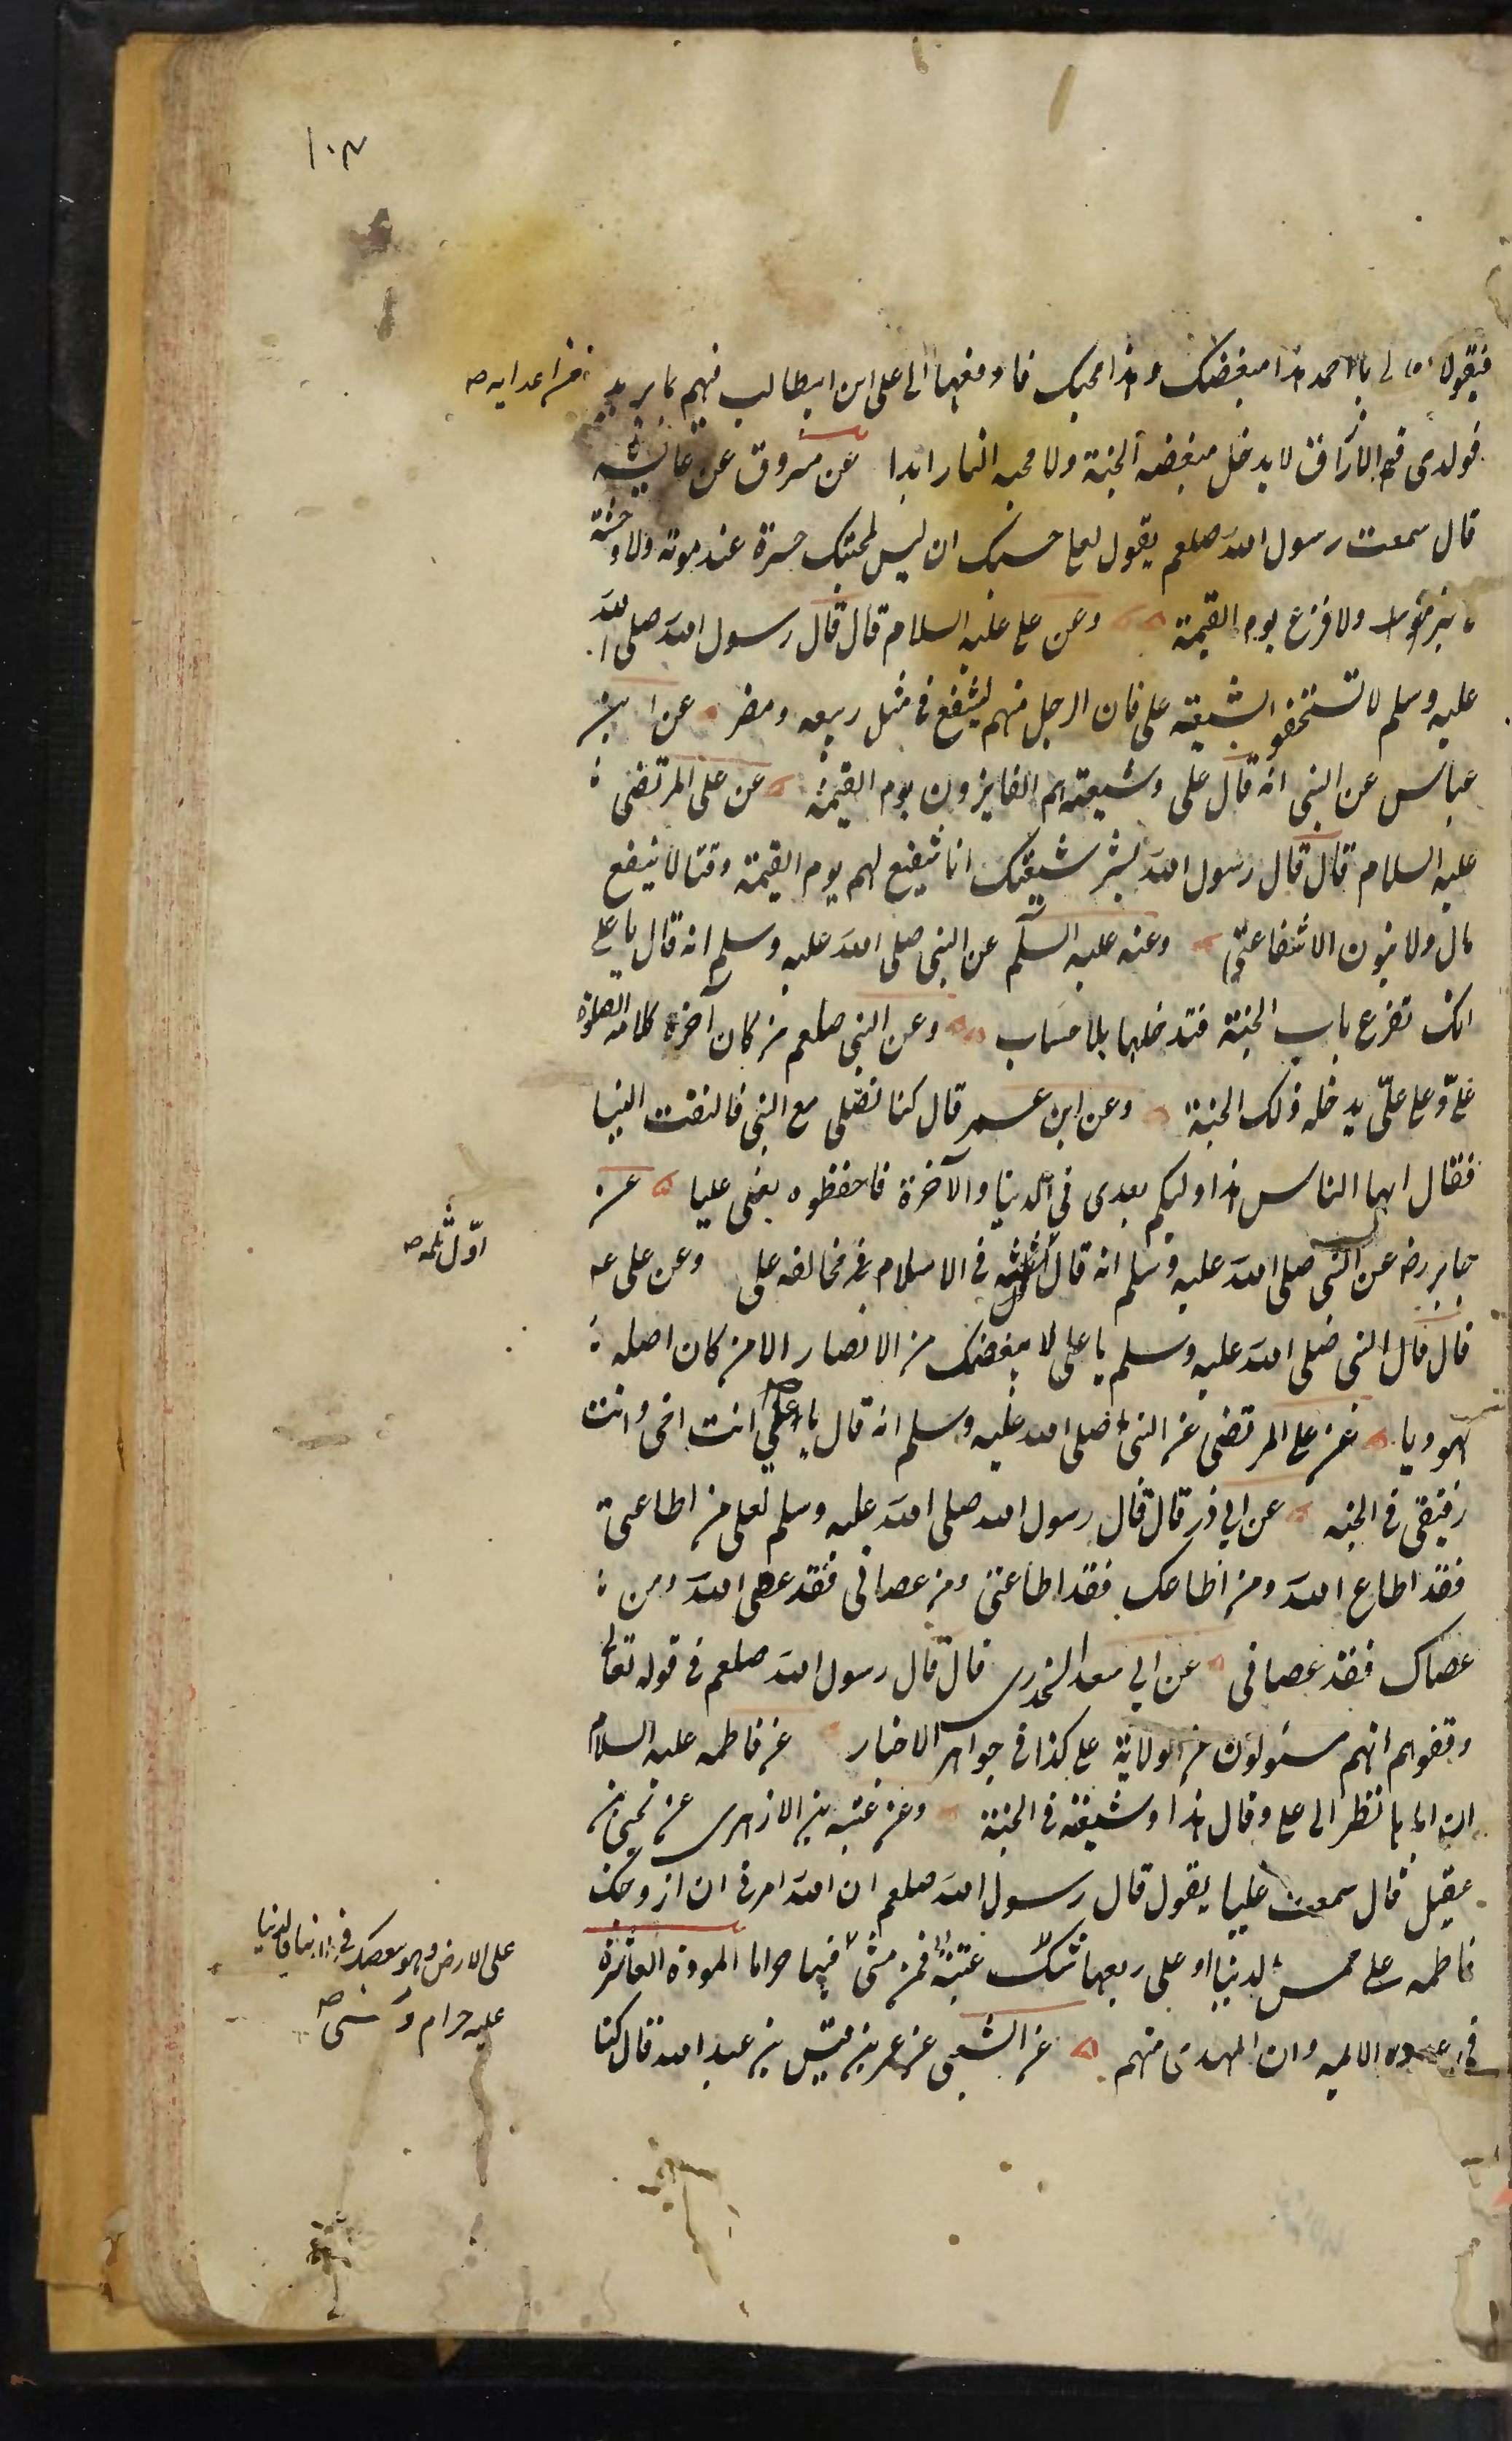 ١٠٣
فيقول لى يا محمد هذا مبغضك وهذا محبك فادفعهما الى على ابن ابيطالب فيهم ما يريد
من اعدايه صح
فو لدى لا يدخل مبغضه الجنة ولا محبه النار ابدا عن مسروق عن عايشه
قال سمعت رسول الله صلعم يقول لعلى حسبك ان ليس لمحبتك حسرة عند موته ولا وحشة
ولا فزع يوم القيمة وعن على عليه السلام قال قال رسول الله صلى الله
عليه وسلم لا تستخفوا بشيعة على فان الرجل منهم ليشفع فى مثل ربيعه ومضر عن ابن
عباس عن النبى انه قال على وشيعته هم الفايزون يوم القيمة عن على المرتضى
عليه السلام قال قال رسول الله بشر شيعتك انا شفيع لهم يوم القيمة وقتا لا ينفع
مال ولا بنون الا شفاعتى وعنه عليه السلم عن النبى صلى الله عليه وسلم انه قال يا على
انك تقرع باب الجنة فتدخلها بلا حساب وعن النبى صلعم من كان آخرة كلامه الصلوة
علىّ وعلى علىّ يدخله ذلك الجنة وعن ابن عمر قال كنا نصلى مع النبى فالتفت الينا
فقال ايها الناس هذا وليكم بعدى فى الدنيا والآخرة فاحفظوه يعنى عليا عن
جابر رضه عن النبى صلى الله عليه وسلم انه قال فى الاسلام مخالفه على وعن على عه
اوّل ثلمه صح
قال قال النبى صلى الله عليه وسلم يا على لا يبغضك من الانصار الا من كان اصله
يهوديا عن على المرتضى عن النبى صلى الله عليه وسلم انه قال يا على انت اخى وانت
رفيقى فى الجنه عن ابى ذر قال قال رسول الله صلى الله عليه وسلم لعلى من اطاعنى
فقد اطاع الله ومن اطاعك فقد اطاعنى ومن عصانى فقد عصى الله ومن
عصاك فقد عصانى عن ابى سعد الخدرى قال قال رسول الله صلعم فى قوله تعالى
وقفوهم انهم مسئولون عن الولاية على كذا فى جواهر الاخبار عن فاطمه عليه السلام
ان ابى نظر الى على وقال هذا وشيعته فى الجنة وعن عتبه بن الازهرى عن يحيى بن
عقيل قال سمعت عليا يقول قال رسول الله صلعم ان الله امرنى ان ازوجك
فاطمه على خمس الدنيا او على ربعها شك عتبة فمن مشى فيها حراما المودة العاشرة
على الارض وهو يبغضك فى الدنيا فالدنيا
عليه حرام و مشى صح
فى الائمه وان المهدى منهم عن الشعبى عن عمر بن قيس بن عبد الله قال كنا